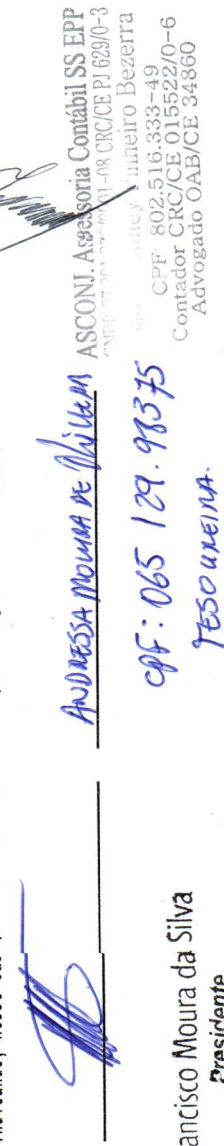 ancisco Moura da Silva
Presidente
ANDRESSA MOURA DE
CPF: 065 129.983 75
TESOUREIRA.
ASCONJ. Assessoria Contábil SS EPP
CRC/CE PJ 629/0-3
inheiro Bezerra
CPF 802.516.333-49
Contador CRC/CE 015522/0-6
Advogado OAB/CE 34860